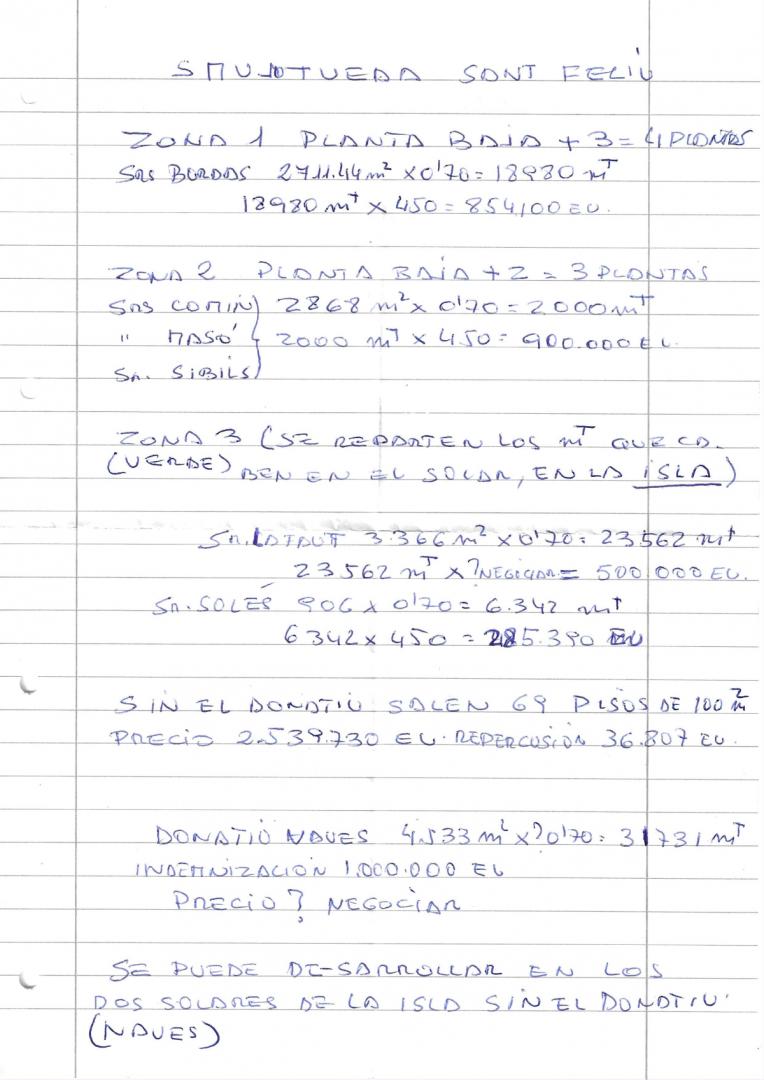 SANT FELIU
ZONA 1 PLANTA BAJA + 3 = 4 PLANTAS
SRS BORDAS 2711.44 m² x 0'70 = 18980 mT
18980 mT x 450 = 854,100 EU.
ZONA 2 PLANTA BAJA + 2 = 3 PLANTAS
SRS COMIN) 2868 m² x 0'70 = 2000 mT
" MASÓ { 2000 mT x 450 = 900.000 EU.
SR. SIBILS)
ZONA 3 (SE REPARTEN LOS mT QUE CA-
(VERDE) BEN EN EL SOLAR, EN LA ISLA)
SR. 3.366 m² x 0'70 = 23562 mT
23562 mT x ? NEGOCIAR = 500.000 EU.
SR. SOLÉS 906 x 0'70 = 6.342 mT
6342 x 450 = 285.390 EU
SIN EL DONATIU SALEN 69 PISOS DE 100 m²
PRECIO 2.539.730 EU. REPERCUSIÓN 36.807 EU.
DONATIU NAVES 4.533 m² x ? 0'70 = 31731 mT
INDEMNIZACIÓN 1.000.000 EU
PRECIO ? NEGOCIAR
SE PUEDE DE-SARROLLAR EN LOS
DOS SOLARES DE LA ISLA SIN EL DONATIU
(NAVES)